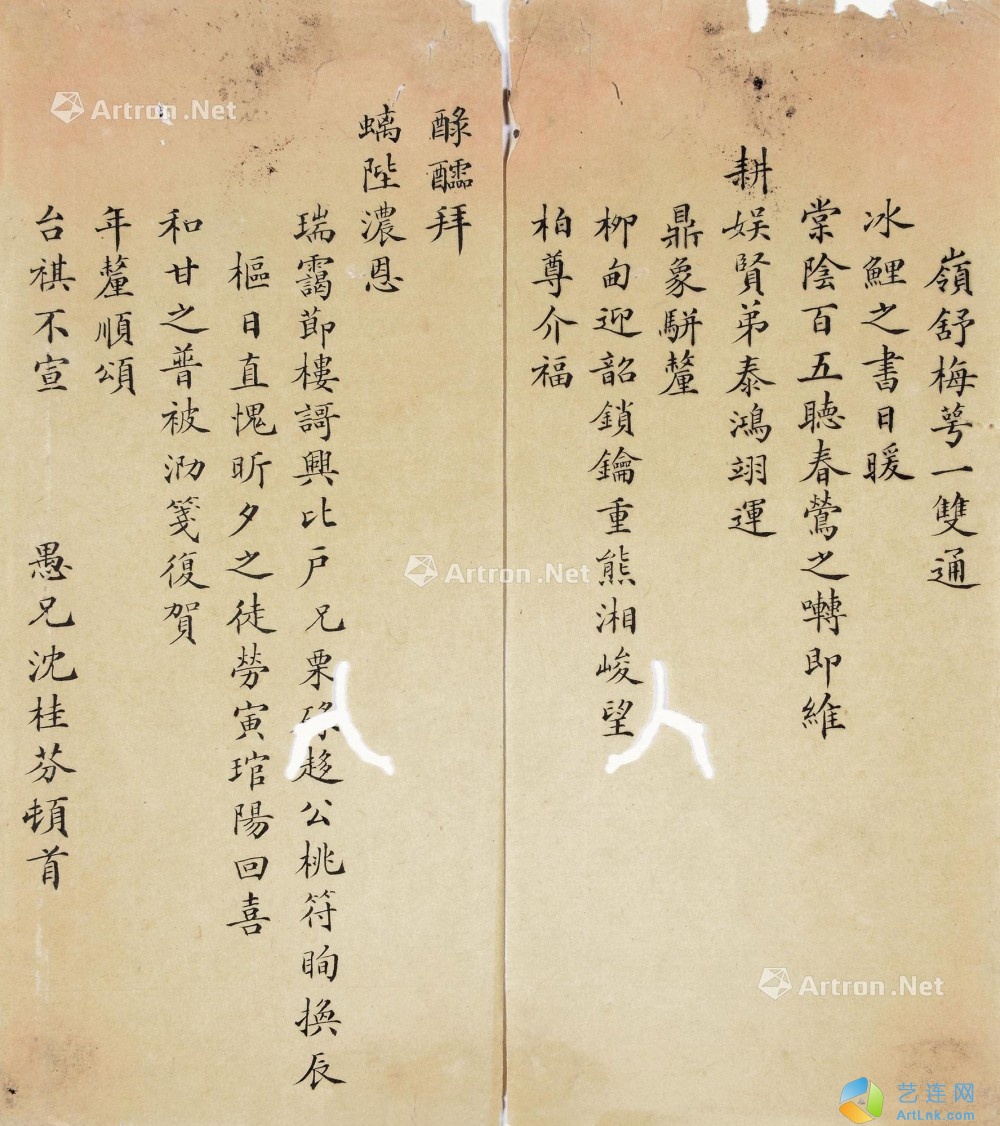 嶺舒梅萼一雙通
冰鯉之書日暖
棠陰百五聽春鶯之囀即維
耕娛賢弟泰鴻翊運
鼎象駢釐
柳甸迎韶鎖鑰重熊湘峻望
柏尊介福
醁醽拜
螭陛濃恩
瑞靄節樓謌興比戶兄栗碌趍公桃符眴換辰
樞日直愧昕夕之徒勞寅琯陽回喜
和甘之普被泐箋復賀
年釐順頌
台祺不宣
愚兄沈桂芬頓首
Artron.Net
Artron.Net
Artron.Net
艺连网
ArtLnk.com